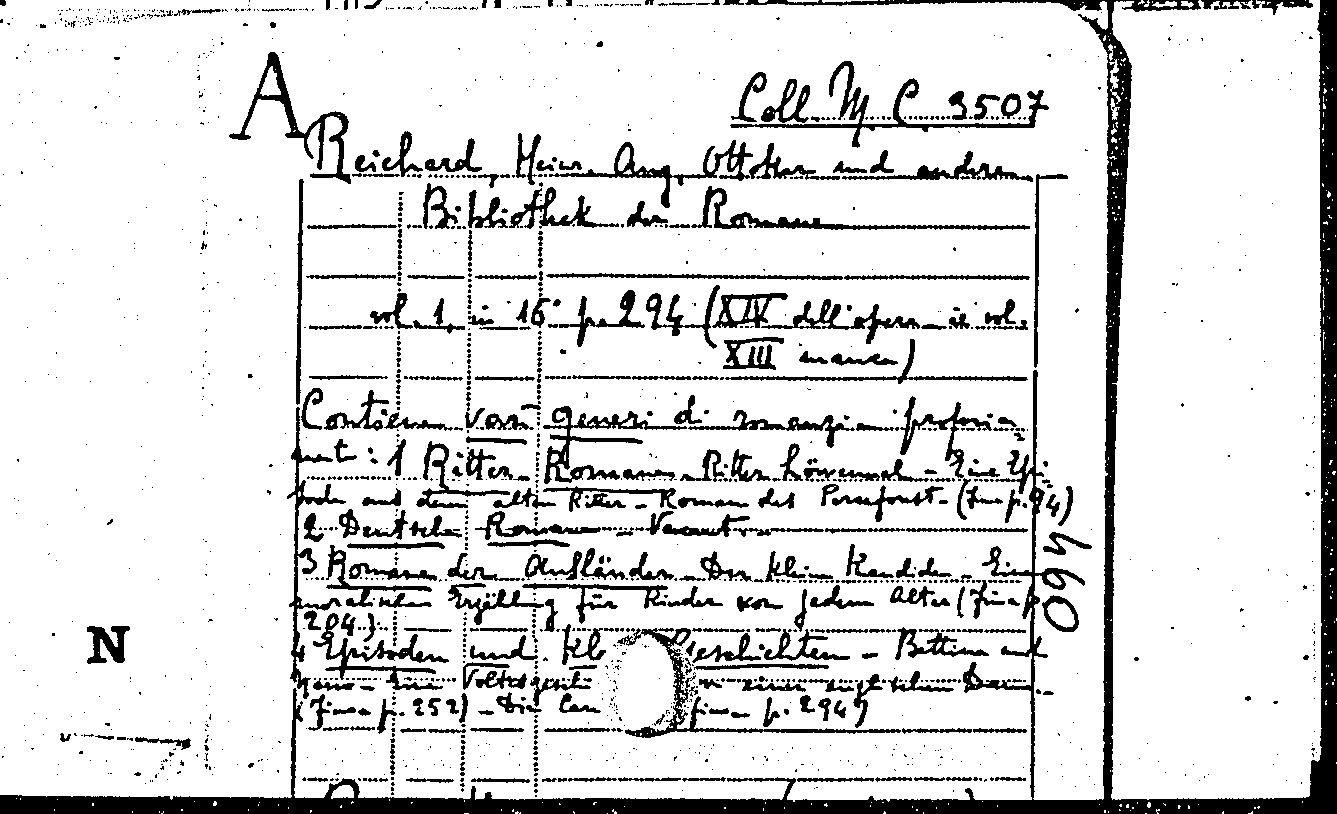 A
Coll. M. C. 3507
Reichard, Heinr. Aug. Ottokar und andere
Bibliothek der Romane
vol. 1, in 16° p. 294 (XIV dell'opera - il vol.
XIII manca)
Contiene varî generi di romanzi e propria-
ment: 1 Ritter-Romane. Ritter Löwenmal - Eine Epi-
soden aus dem alten Ritter-Roman des Perseforest - (fin p. 94)
2 Deutsche Romane - Vacant. -
3 Romane der Ausländer - Der kleine Kandide - Eine
moralischen Erzählung für Kinder von jedem Alter (fin p.
204.)
4 Episoden und Kle Geschichten - Bettina und
Eine Volksgeschi einer englischen Dame -
(fin p. 252) - Die Can fin p. 294)
460
N